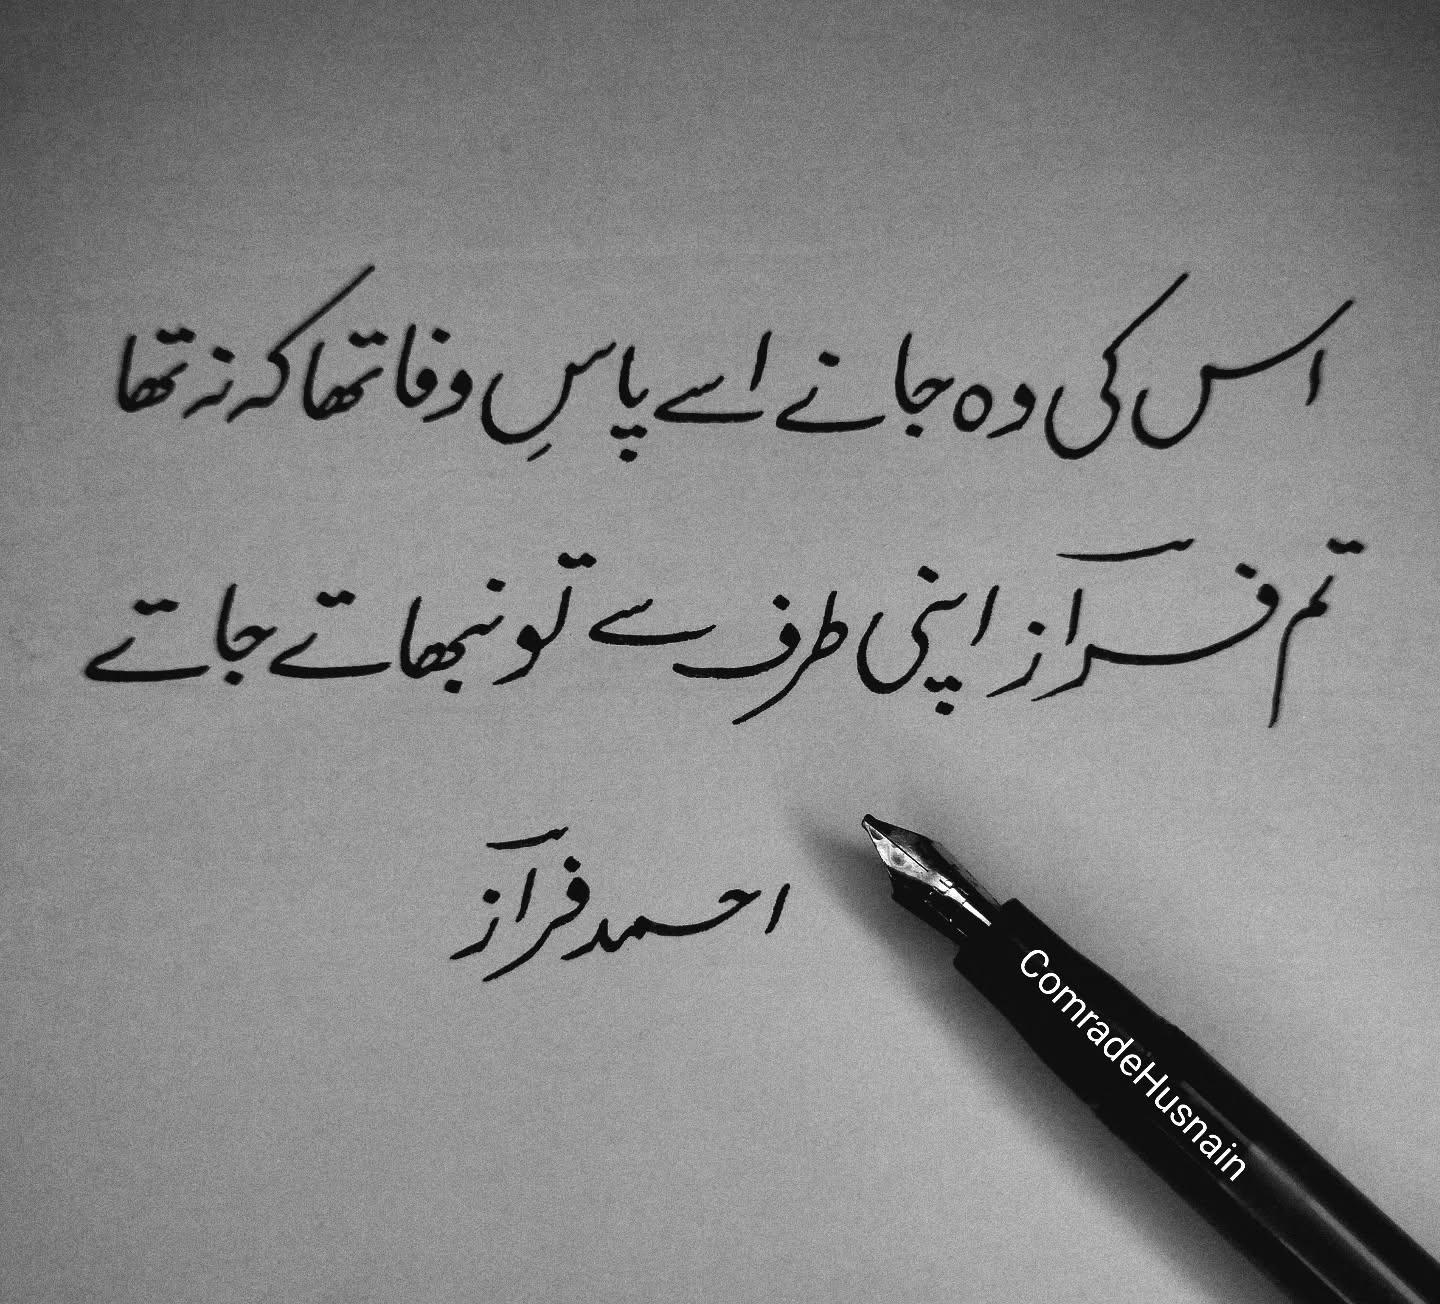 اس کی وہ جانے اسے پاسِ وفا تھا کہ نہ تھا
تم فرازؔ اپنی طرف سے تو نبھاتے جاتے
احمد فرازؔ
ComradeHusnain